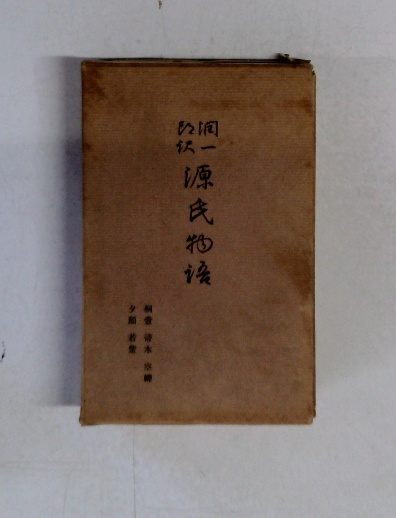 潤一
郎訳
源氏物語
桐壺 帚木 空蝉
夕顔 若紫